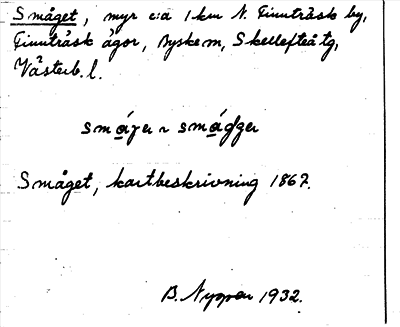 Småget, myr c:a 1 km N. Finnträsk by,
Finnträsk ägor, Byske sn, Skellefteå tg,
Västerb. l.
Småget, kartbeskrivning 1867.
B. 1932.